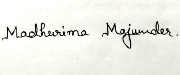 Madhurima Majumder.